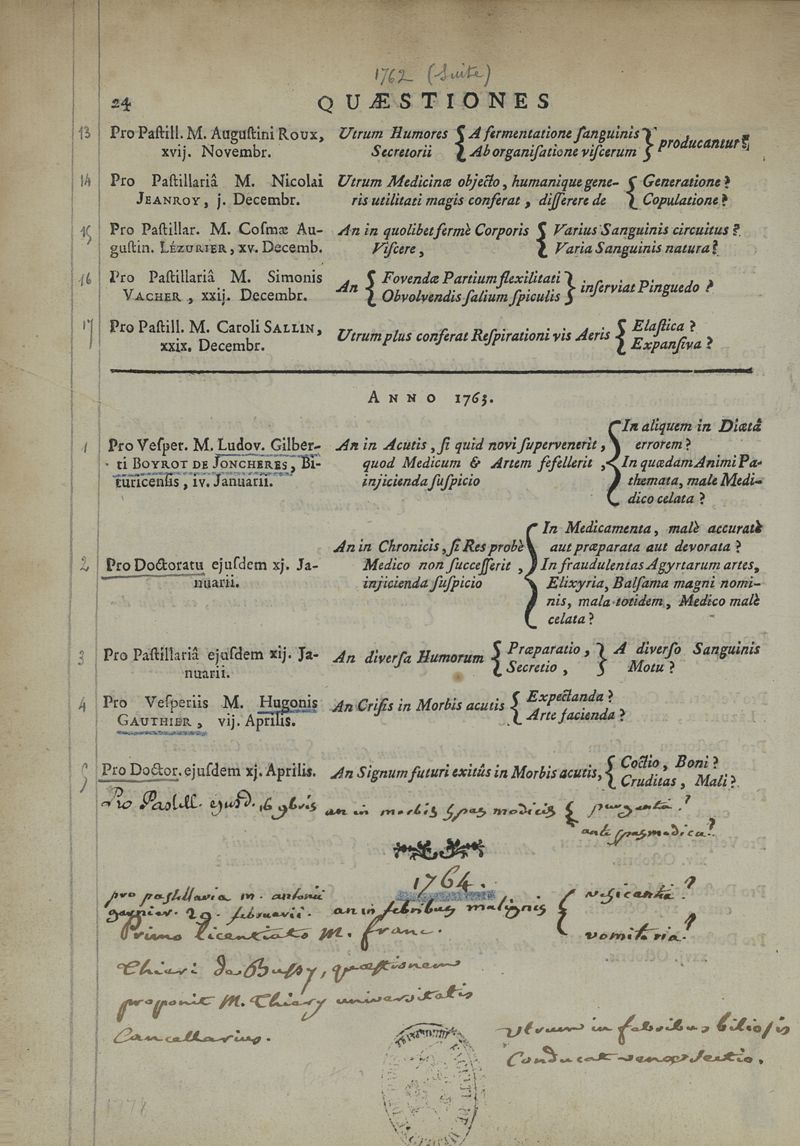 1762 (Suite)
24 QUÆSTIONES
13 Pro Paſtill. M. Auguſtini Roux, Utrum Humores { A fermentatione ſanguinis } producantur?
xvij. Novembr. Secretorii { Ab organiſatione viſcerum }
14 Pro Paſtillariâ M. Nicolai Utrum Medicinæ objecto, humanique gene- { Generatione?
JEANROY, j. Decembr. ris utilitati magis conferat, differere de { Copulatione?
15 Pro Paſtillar. M. Coſmæ Au- An in quolibet fermè Corporis { Varius Sanguinis circuitus?
guſtin. LÉZURIER, xv. Decemb. Viſcere, { Varia Sanguinis natura?
16 Pro Paſtillariâ M. Simonis An { Fovendæ Partium flexilitati } inſerviat Pinguedo?
VACHER, xxij. Decembr. { Obvolvendis ſalium ſpiculis }
17 Pro Paſtill. M. Caroli SALLIN, Utrum plus conferat Reſpirationi vis Aeris { Elaſtica?
xxix. Decembr. { Expanſiva?
ANNO 1763.
{ In aliquem in Diætâ
1 Pro Veſper. M. Ludov. Gilber- An in Acutis, ſi quid novi ſupervenerit, errorem?
ti BOYROT DE JONCHERES, Bi- quod Medicum & Artem fefellerit, { In quædam Animi Pa-
turicenſis, iv. Januarii. injicienda ſuſpicio themata, male Medi-
dico celata?
{ In Medicamenta, malè accuratè
An in Chronicis, ſi Res probè aut præparata aut devorata?
2 Pro Doctoratu ejuſdem xj. Ja- Medico non ſucceſſerit, { In fraudulentas Agyrtarum artes,
nuarii. injicienda ſuſpicio Elixyria, Balſama magni nomi-
nis, mala totidem, Medico malè
celata?
3 Pro Paſtillariâ ejuſdem xij. Ja- An diverſa Humorum { Præparatio, } A diverſo Sanguinis
nuarii. { Secretio, } Motu?
4 Pro Veſperiis M. Hugonis An Criſis in Morbis acutis { Expectanda?
GAUTHIER, vij. Aprilis. { Arte facienda?
5 Pro Doctor. ejuſdem xj. Aprilis. An Signum futuri exitûs in Morbis acutis, { Coctio, Boni?
{ Cruditas, Mali?
Pro Pastill. ejusd. 16 9bris an in morbis spas modicis { purgantia?
antispasmodica?
1764.
pro pastillaria m. antonii { vesicantia?
garnier. 29. februarii. an in febribus malignis
Primo licentiato M. franc. { vomitoria?
Thieri de Bussy, quæstionem
proponit M. Thiery universitatis
Cancellarius.
Utrum in febribus biliosis
Conducat venæ sectio.
1778